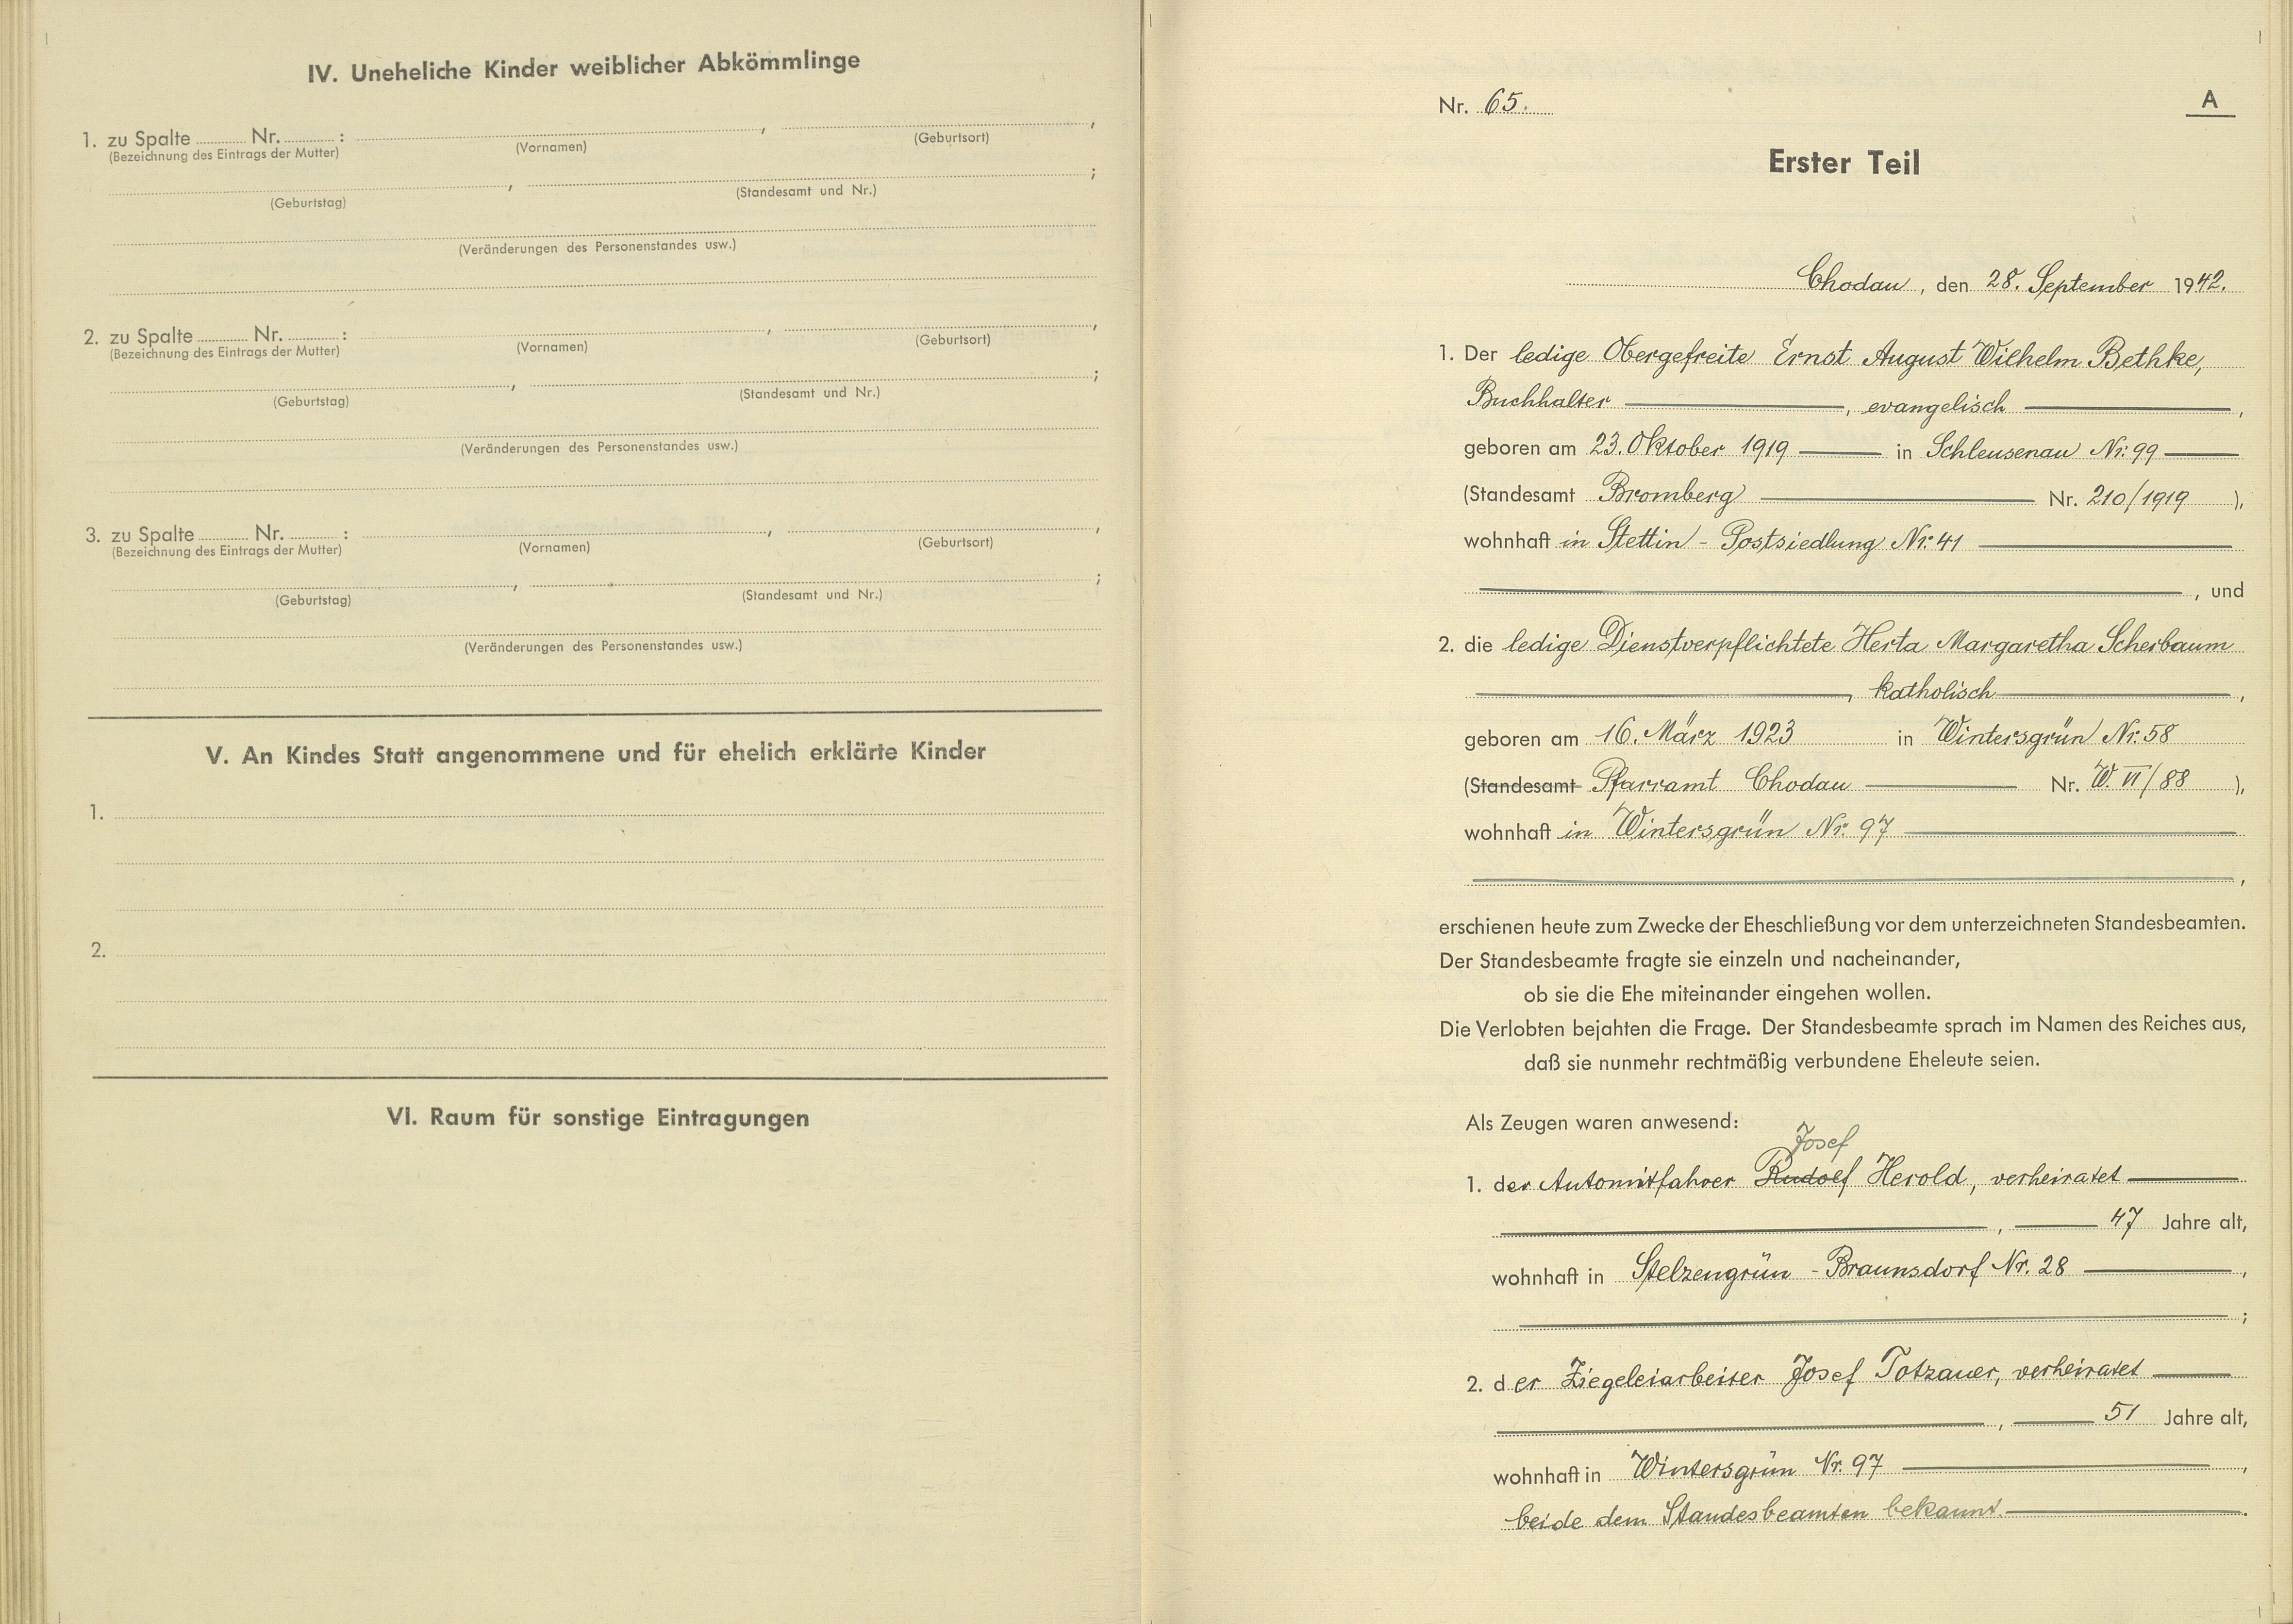 IV. Uneheliche Kinder weiblicher Abkömmlinge
1. zu Spalte ........ Nr. ........ : , ,
(Bezeichnung des Eintrags der Mutter) (Vornamen) (Geburtsort)
, ;
(Geburtstag) (Standesamt und Nr.)
(Veränderungen des Personenstandes usw.)
2. zu Spalte ........ Nr. ........ : , ,
(Bezeichnung des Eintrags der Mutter) (Vornamen) (Geburtsort)
, ;
(Geburtstag) (Standesamt und Nr.)
(Veränderungen des Personenstandes usw.)
3. zu Spalte ........ Nr. ........ : , ,
(Bezeichnung des Eintrags der Mutter) (Vornamen) (Geburtsort)
, ;
(Geburtstag) (Standesamt und Nr.)
(Veränderungen des Personenstandes usw.)
V. An Kindes Statt angenommene und für ehelich erklärte Kinder
1.
2.
VI. Raum für sonstige Eintragungen
Nr. 65. A
Erster Teil
Chodau, den 28. September 1942.
1. Der ledige Obergefreite Ernst August Wilhelm Bethke,
Buchhalter , evangelisch ,
geboren am 23. Oktober 1919 in Schleusenau Nr. 99
(Standesamt Bromberg Nr. 210/1919 ),
wohnhaft in Stettin - Postsiedlung Nr. 41
, und
2. die ledige Dienstverpflichtete Herta Margaretha Scherbaum
, katholisch ,
geboren am 16. März 1923 in Wintersgrün Nr. 58
(Standesamt Pfarramt Chodau Nr. W. VI/88 ),
wohnhaft in Wintersgrün Nr. 97
,
erschienen heute zum Zwecke der Eheschließung vor dem unterzeichneten Standesbeamten.
Der Standesbeamte fragte sie einzeln und nacheinander,
ob sie die Ehe miteinander eingehen wollen.
Die Verlobten bejahten die Frage. Der Standesbeamte sprach im Namen des Reiches aus,
daß sie nunmehr rechtmäßig verbundene Eheleute seien.
Als Zeugen waren anwesend:
Josef
1. der Automitfahrer Rudolf Herold, verheiratet
, 47 Jahre alt,
wohnhaft in Stelzengrün - Braunsdorf Nr. 28 ,
;
2. der Ziegeleiarbeiter Josef Totzauer, verheiratet
, 51 Jahre alt,
wohnhaft in Wintersgrün Nr. 97 ,
beide dem Standesbeamten bekannt.